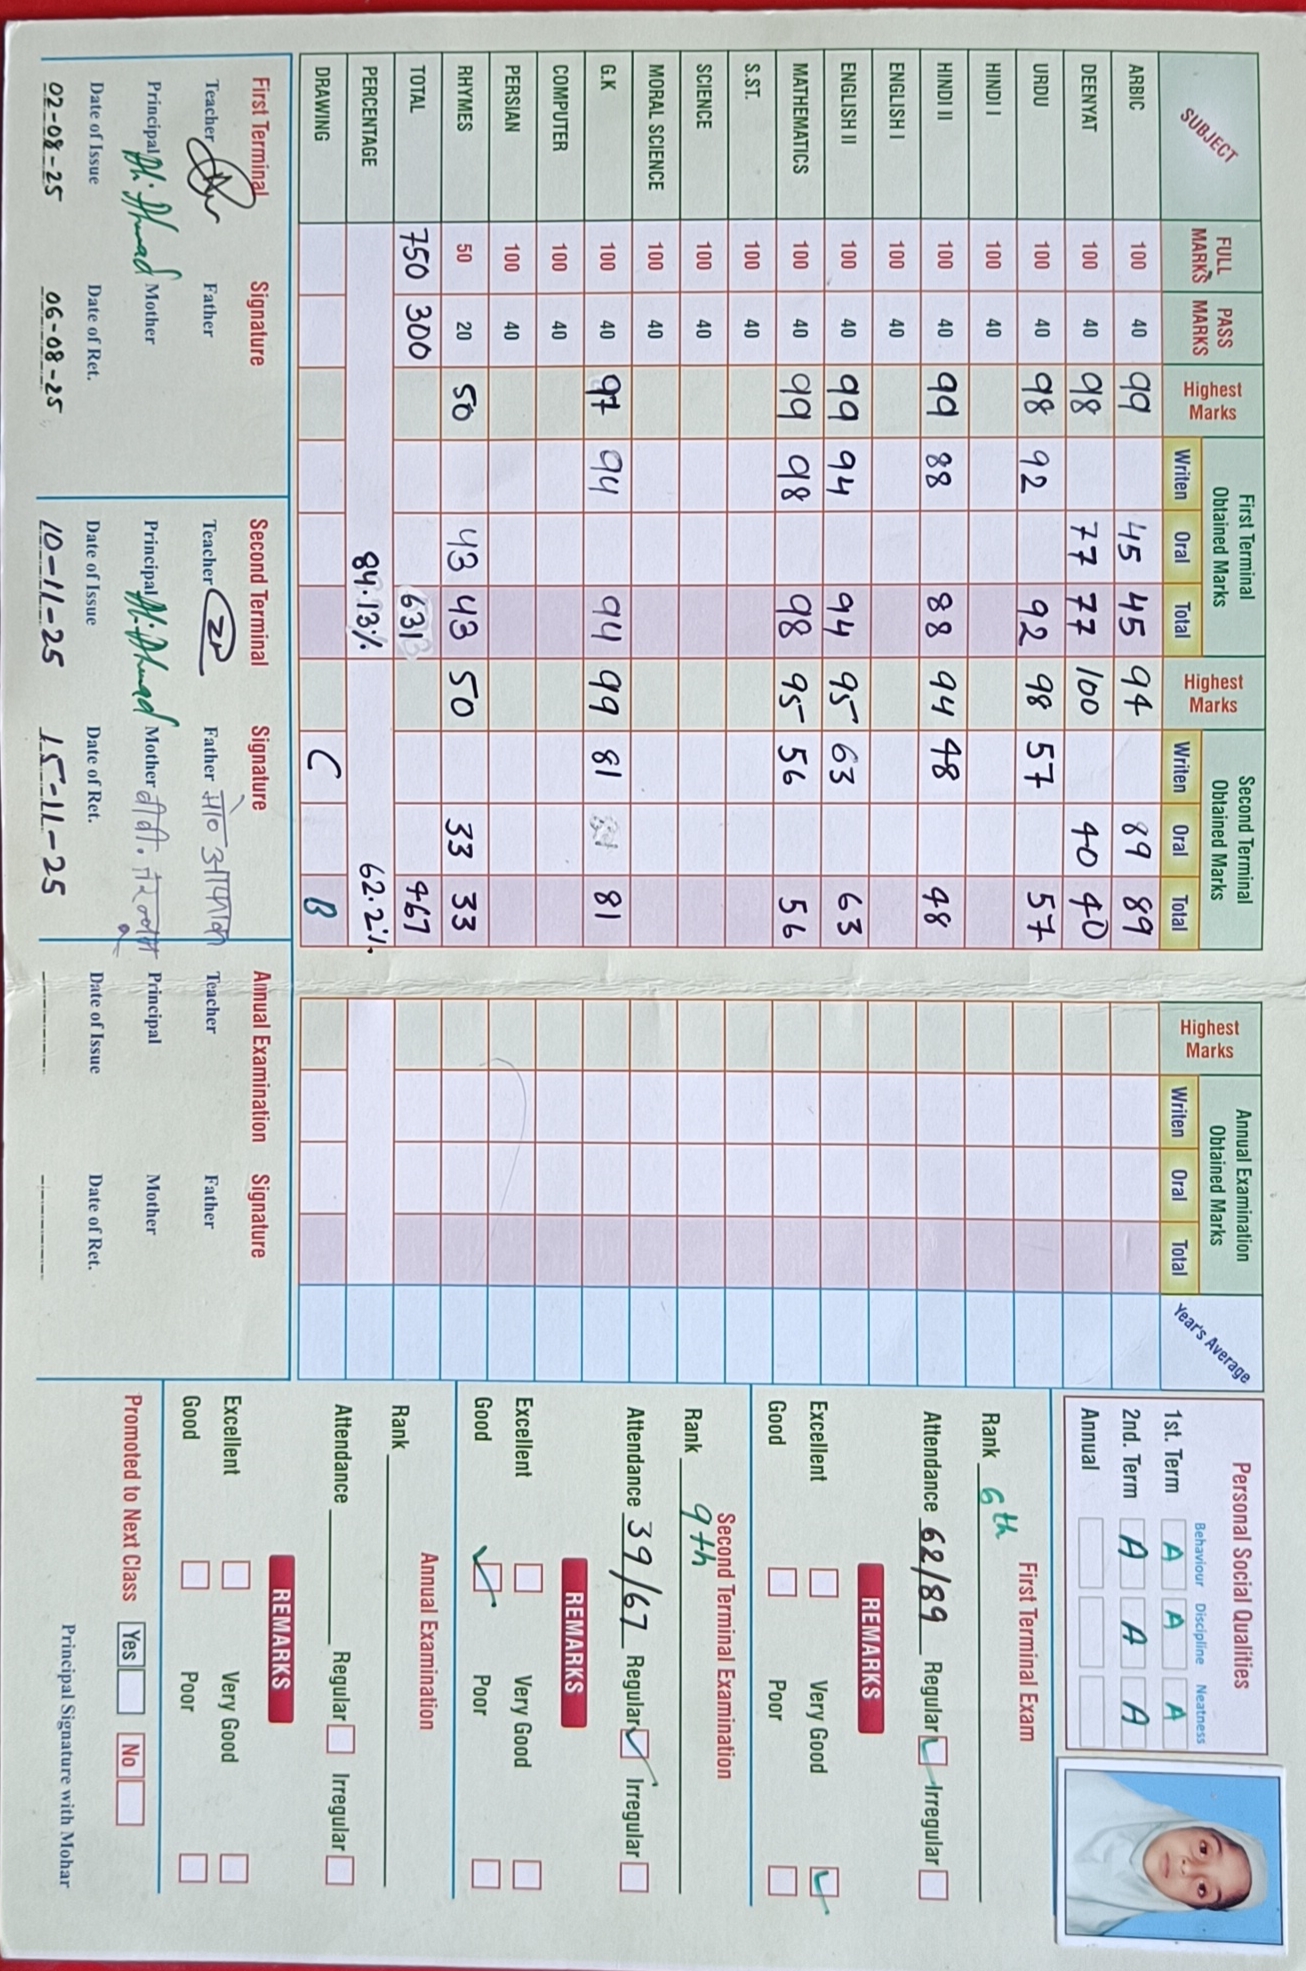 SUBJECT FULL MARKS PASS MARKS Highest Marks First Terminal Obtained Marks Writen Oral Total Highest Marks Second Terminal Obtained Marks Writen Oral Total Highest Marks Annual Examination Obtained Marks Writen Oral Total Year's Average
ARBIC 100 40 99 45 45 94 89 89
DEENYAT 100 40 98 77 77 100 40 40
URDU 100 40 98 92 92 98 57 57
HINDI I 100 40
HINDI II 100 40 99 88 88 94 48 48
ENGLISH I 100 40
ENGLISH II 100 40 99 94 94 95 63 63
MATHEMATICS 100 40 99 98 98 95 56 56
S.ST. 100 40
SCIENCE 100 40
MORAL SCIENCE 100 40
G.K 100 40 97 94 94 99 81 81
COMPUTER 100 40
PERSIAN 100 40
RHYMES 50 20 50 43 43 50 33 33
TOTAL 750 300 631 467
PERCENTAGE 84.13% 62.2%
DRAWING C B
First Terminal Signature
Teacher Father
Principal Ah. Ahmad Mother
Date of Issue Date of Ret.
02-08-25 06-08-25
Second Terminal Signature
Teacher Father मो०
Principal Ah. Ahmad Mother
Date of Issue Date of Ret.
10-11-25 15-11-25
Annual Examination Signature
Teacher Father
Principal Mother
Date of Issue Date of Ret.
Personal Social Qualities
Behaviour Discipline Neatness
1st. Term A A A
2nd. Term A A A
Annual
First Terminal Exam
Rank 6th
Attendance 62/89 Regular Irregular
REMARKS
Excellent Very Good
Good Poor
Second Terminal Examination
Rank 9th
Attendance 39/67 Regular Irregular
REMARKS
Excellent Very Good
Good Poor
Annual Examination
Rank
Attendance Regular Irregular
REMARKS
Excellent Very Good
Good Poor
Promoted to Next Class Yes No
Principal Signature with Mohar